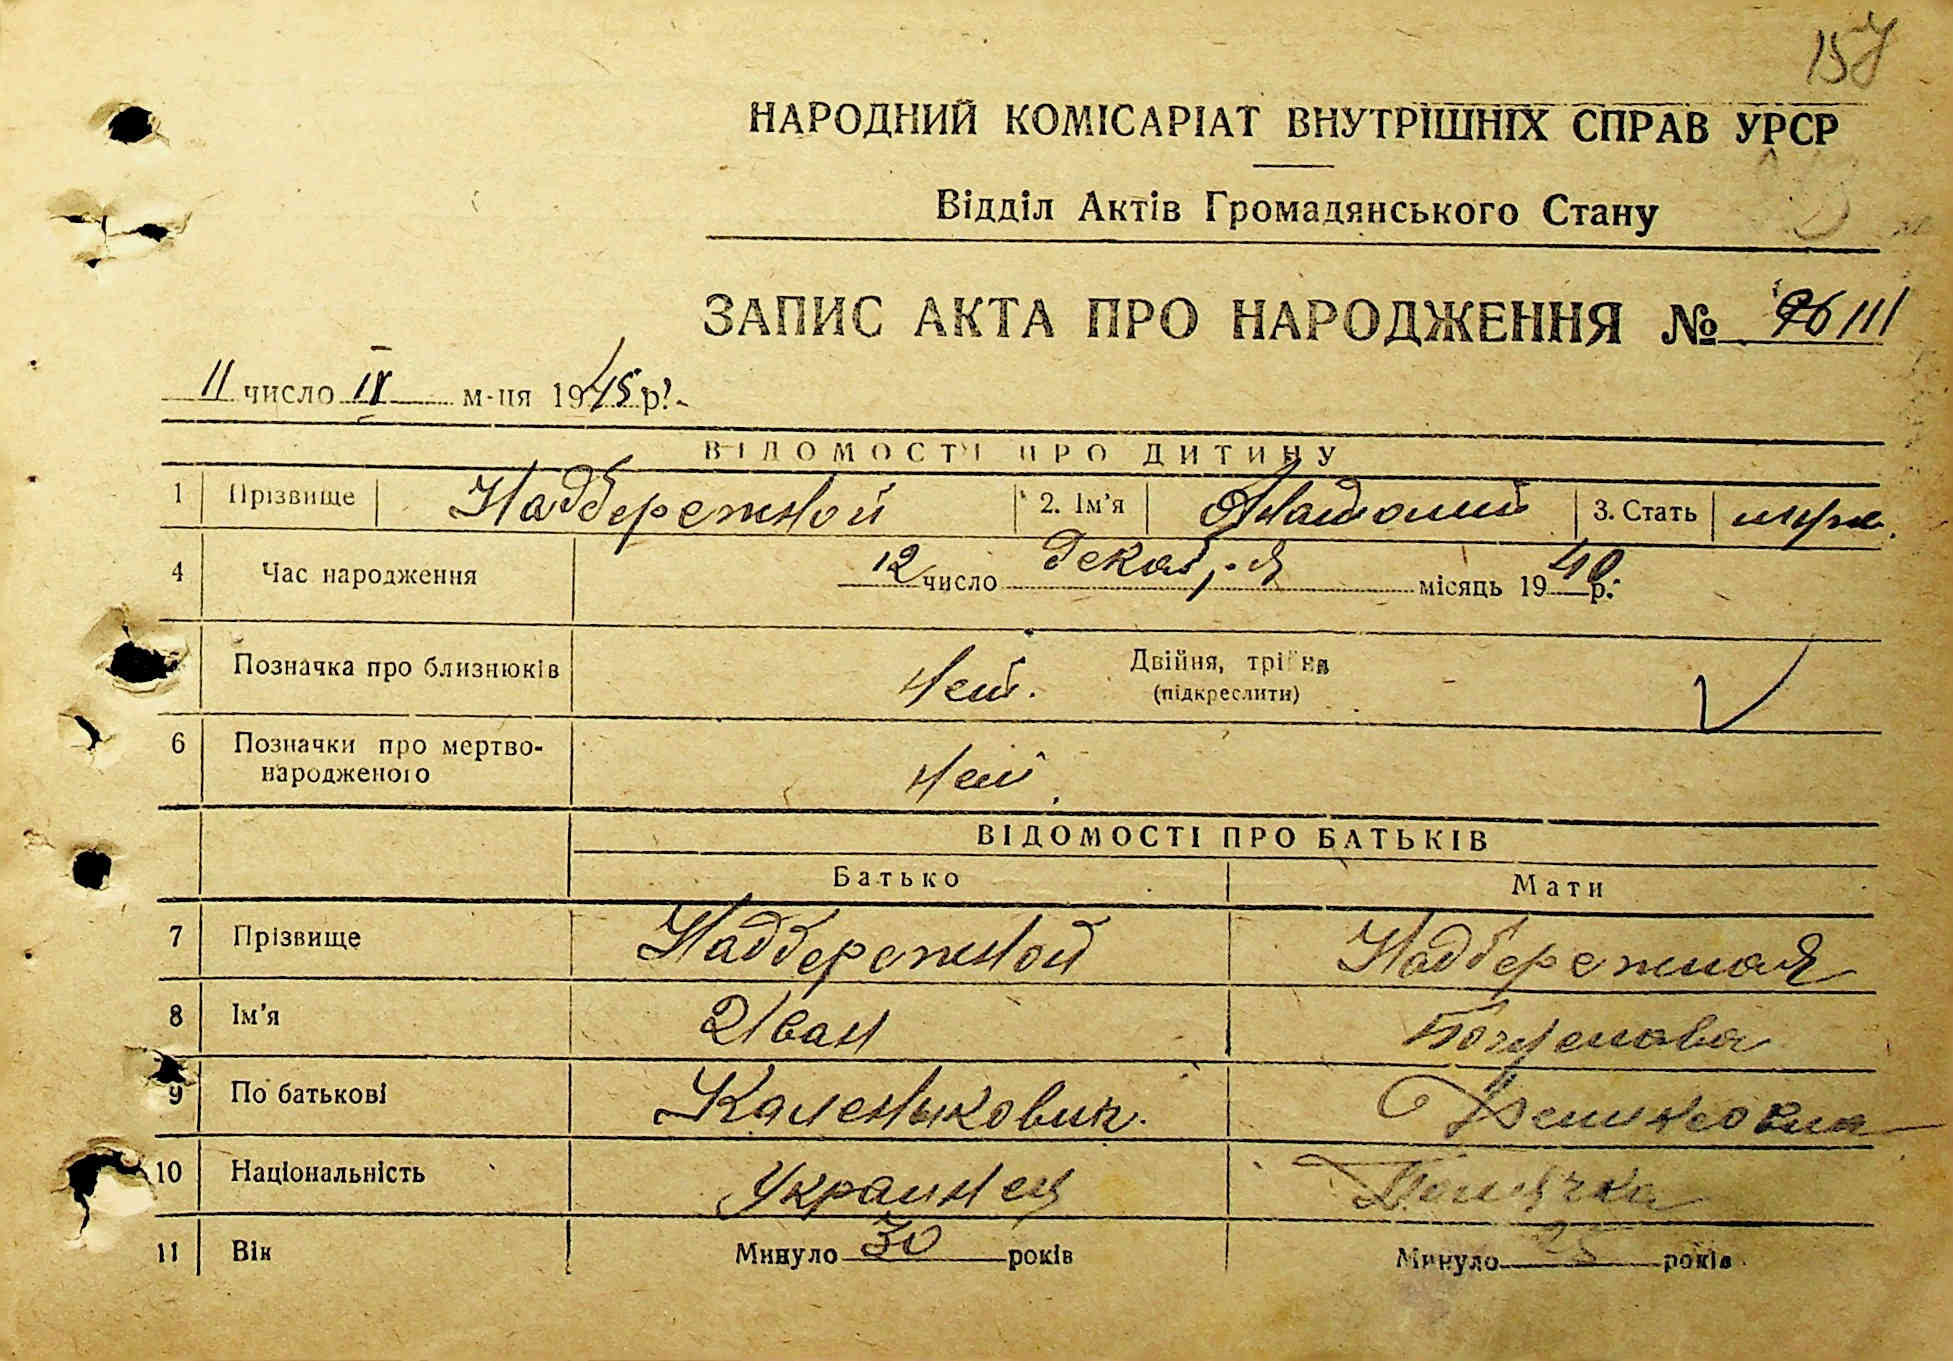 157
НАРОДНИЙ КОМІСАРІАТ ВНУТРІШНІХ СПРАВ УРСР
Відділ Актів Громадянського Стану
ЗАПИС АКТА ПРО НАРОДЖЕННЯ №
11 число IX м-ця 1945 р.
ВІДОМОСТІ ПРО ДИТИНУ
1 Прізвище Надбережной 2. Ім'я Анатолий 3. Стать муж.
4 Час народження 12 число декабря місяць 1940 р.
Позначка про близнюків Нет. Двійня, трійня
(підкреслити)
6 Позначки про мертво-
народженого Нет.
ВІДОМОСТІ ПРО БАТЬКІВ
Батько Мати
7 Прізвище Надбережной Надбережная
8 Ім'я Иван
9 По батькові Каленыкович.
10 Національність Украинец Полячка
11 Вік Минуло 30 років Минуло 25 років